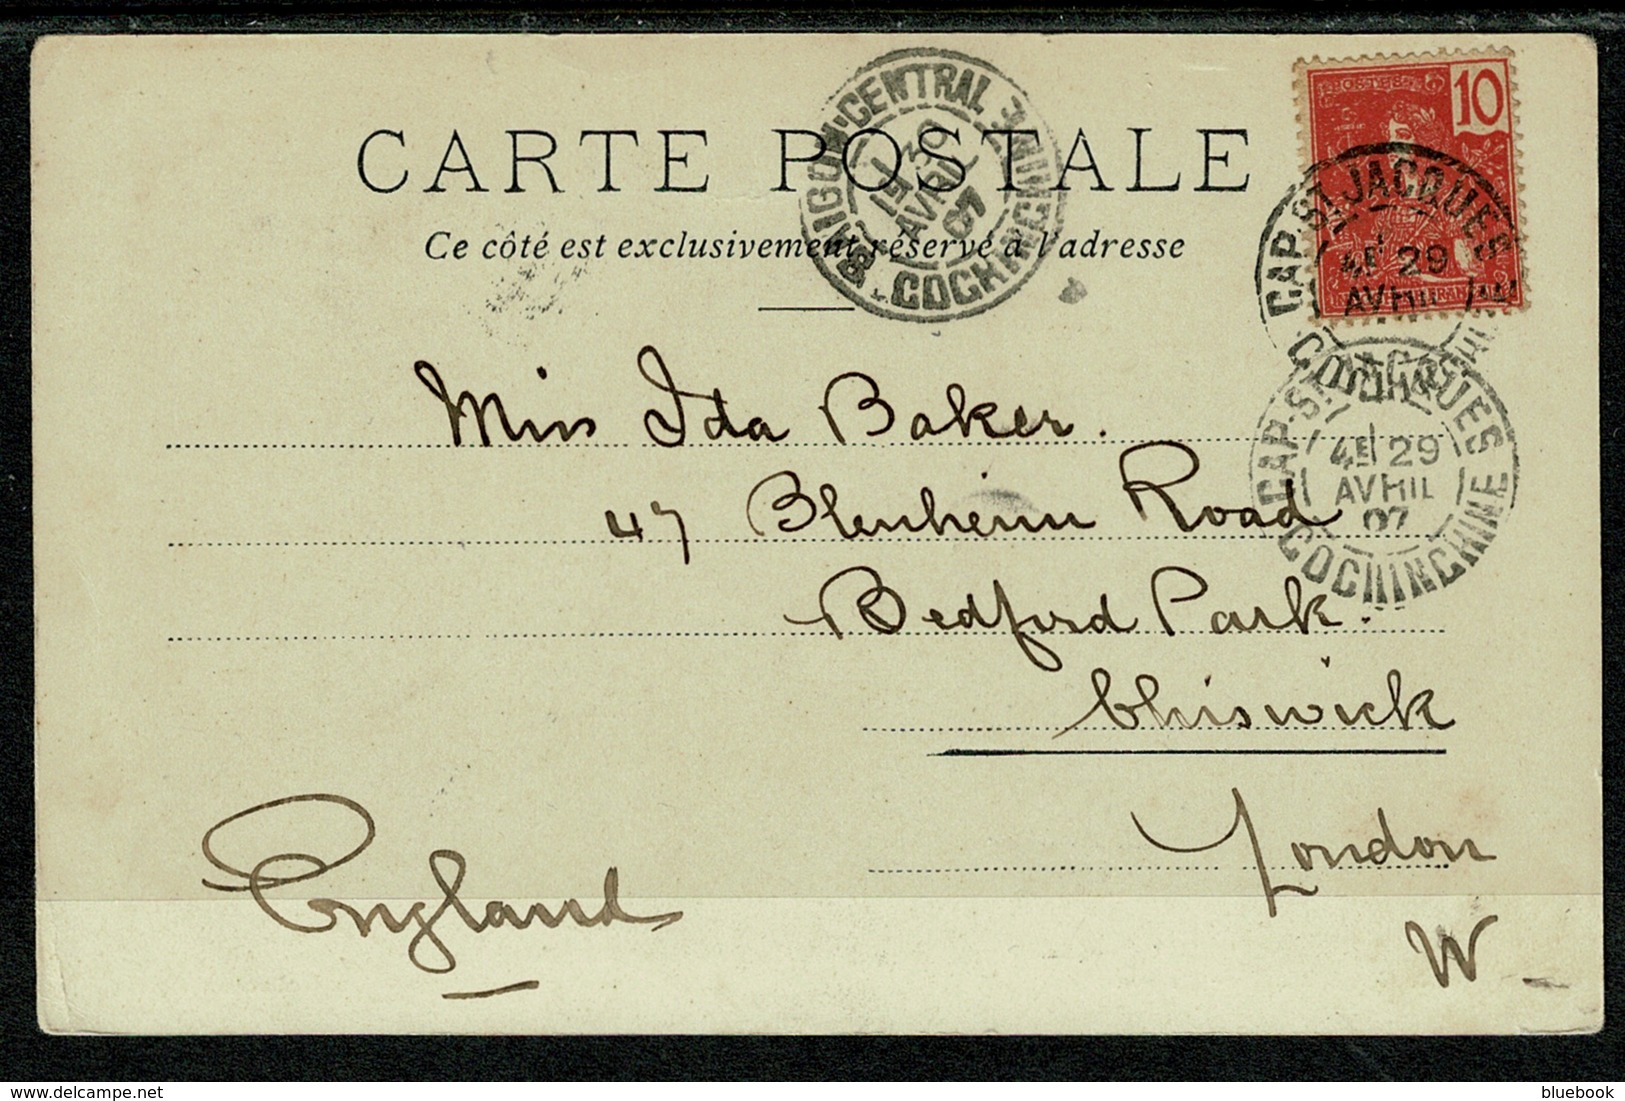 CARTE POSTALE
Ce côté est exclusivement réservé à l'adresse
SAIGON-CENTRAL
1E 30
AVRIL
07
COCHINCHINE
10
CAP-ST JACQUES
4E 29
AVRIL
CAP-ST JACQUES
4E 29
AVRIL
07
COCHINCHINE
Miss Ida Baker.
47 Blenheim Road
Bedford Park.
Chiswick
London
W
England
delcampe.net
bluebook